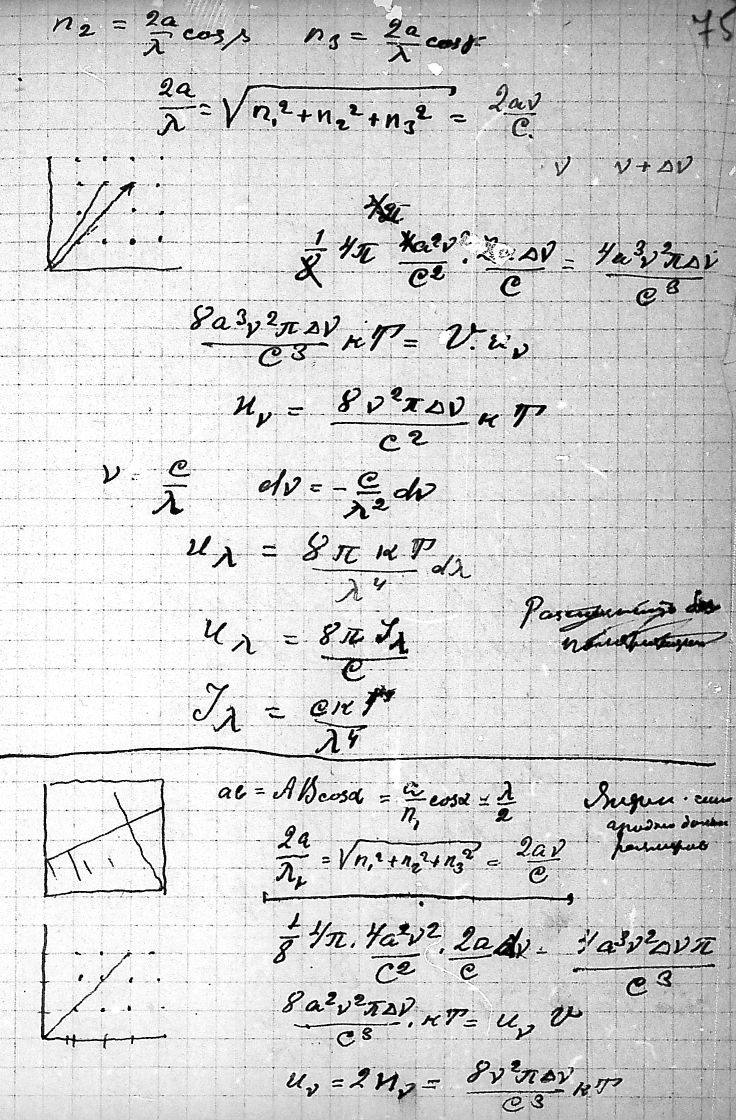 75
n₂ = 2a/λ cosβ n₃ = 2a/λ cosγ
2a/λ = √(n₁² + n₂² + n₃²) = 2aν/c
ν ν + Δν
1/8 4π 4a²ν²/c² · 2a Δν/c = 4a³ν²πΔν/c³
8a³ν²πΔν/c³ кТ = V·u_ν
u_ν = 8ν²πΔν/c² кТ
ν = c/λ dν = −c/λ² dν
u_λ = 8πкТ/λ⁴ dλ
u_λ = 8πJ_λ/c
J_λ = скТ/λ⁴
ав = ABcosα = a/n₁ cosα = λ/2
2a/λ₁ = √(n₁² + n₂² + n₃²) = 2aν/c
1/8 4π · 4a²ν²/c² · 2a/c dν = 4a³ν²Δνπ/c³
8a²ν²πΔν/c³ · кТ = u_ν V
u_ν = 2u_ν = 8ν²πΔν/c³ кТ